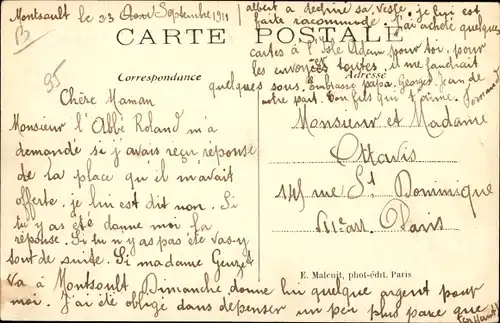 Montsoult le 23 Septembre 1911
B
95
CARTE POSTALE
Correspondance
Adresse
Chère Maman
Monsieur l'Abbé Roland m'a
demandé si j'avais reçu réponse
de la place qu'il m'avait
offerte. je lui est dit non. Si
tu y as été donne moi la
réponse. Si tu n'y as pas été vas-y
tout de suite. Si madame
va à Montsoult Dimanche donne lui quelque argent pour
moi. J'ai été obligé dans dépenser un peu plus parce que
(en haut)
albert a déchiré sa veste, je lui est
faite raccommodé. J'ai acheté quelques
cartes à l'Isle Adam pour toi, pour
les envoyer toutes. il me faudrait
quelques sous. Embrasse papa, Georges, Jean de
notre part. Ton fils qui t'aime.
Monsieur et Madame
Ottavis
145 rue St Dominique
VIIe arr. Paris
E. Malcuit, phot-édit. Paris